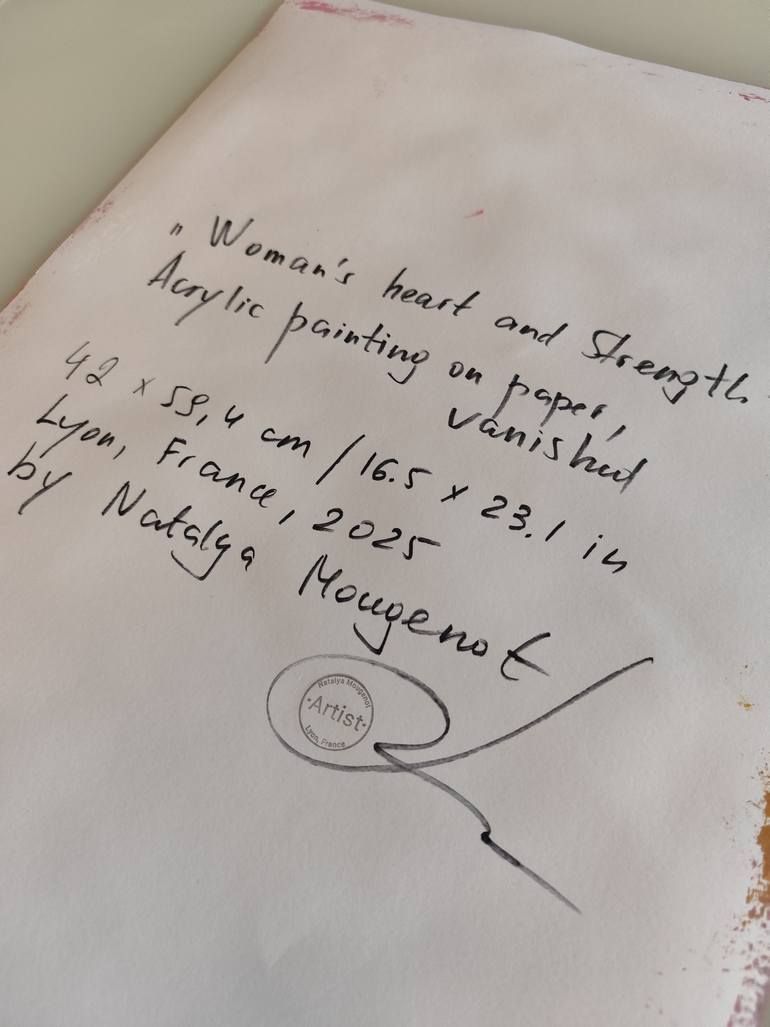 „ Woman's heart and Strength
Acrylic painting on paper,
vanished
42 x 59,4 cm / 16.5 x 23.1 in
Lyon, France, 2025
by Natalya Mougenot
Natalya Mougenot
·Artist·
Lyon, France